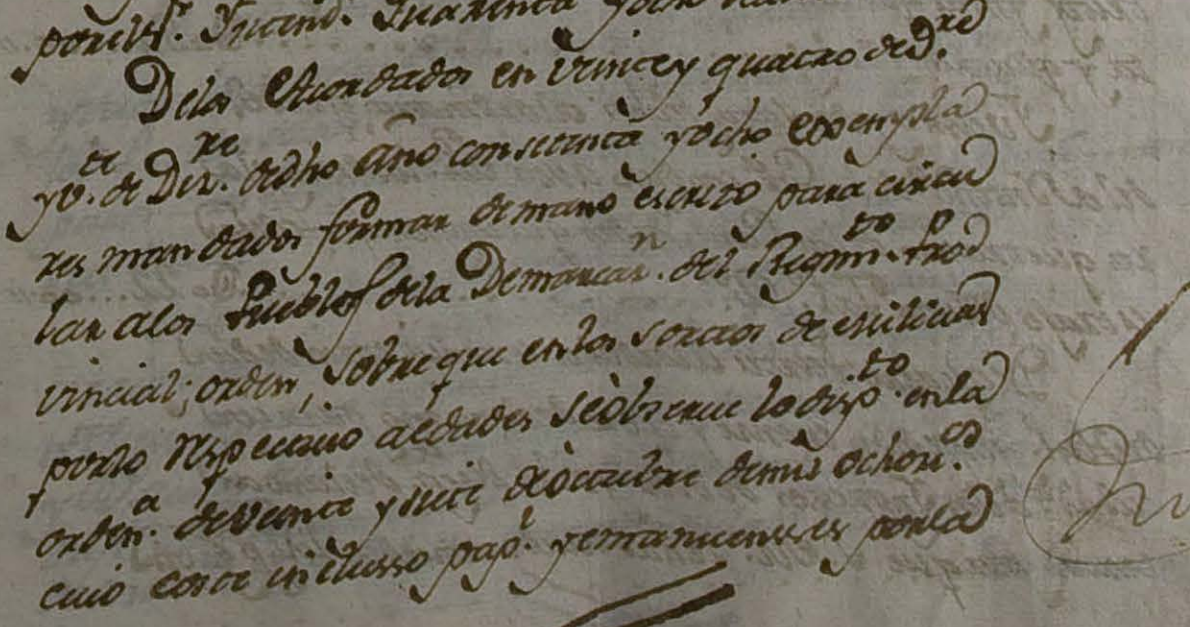 por el Sr. Intend. Quarenta y ocho
De los Acordados en veinte y quatro de Dre
y de Dizre. de dho año con setenta y ocho exempla
res mandados formar de mano escrito para circu
lar alos Pueblos dela Demarcan. del Regimto. Pro
vincial; orden, sobre que en los sorteos de milicias
por lo respectivo a edades se observe lo dispto. en la
ordena. de veinte y siete de octubre de mil ochoc.os
cuio coste inclusso pap.l y emanuenses por la